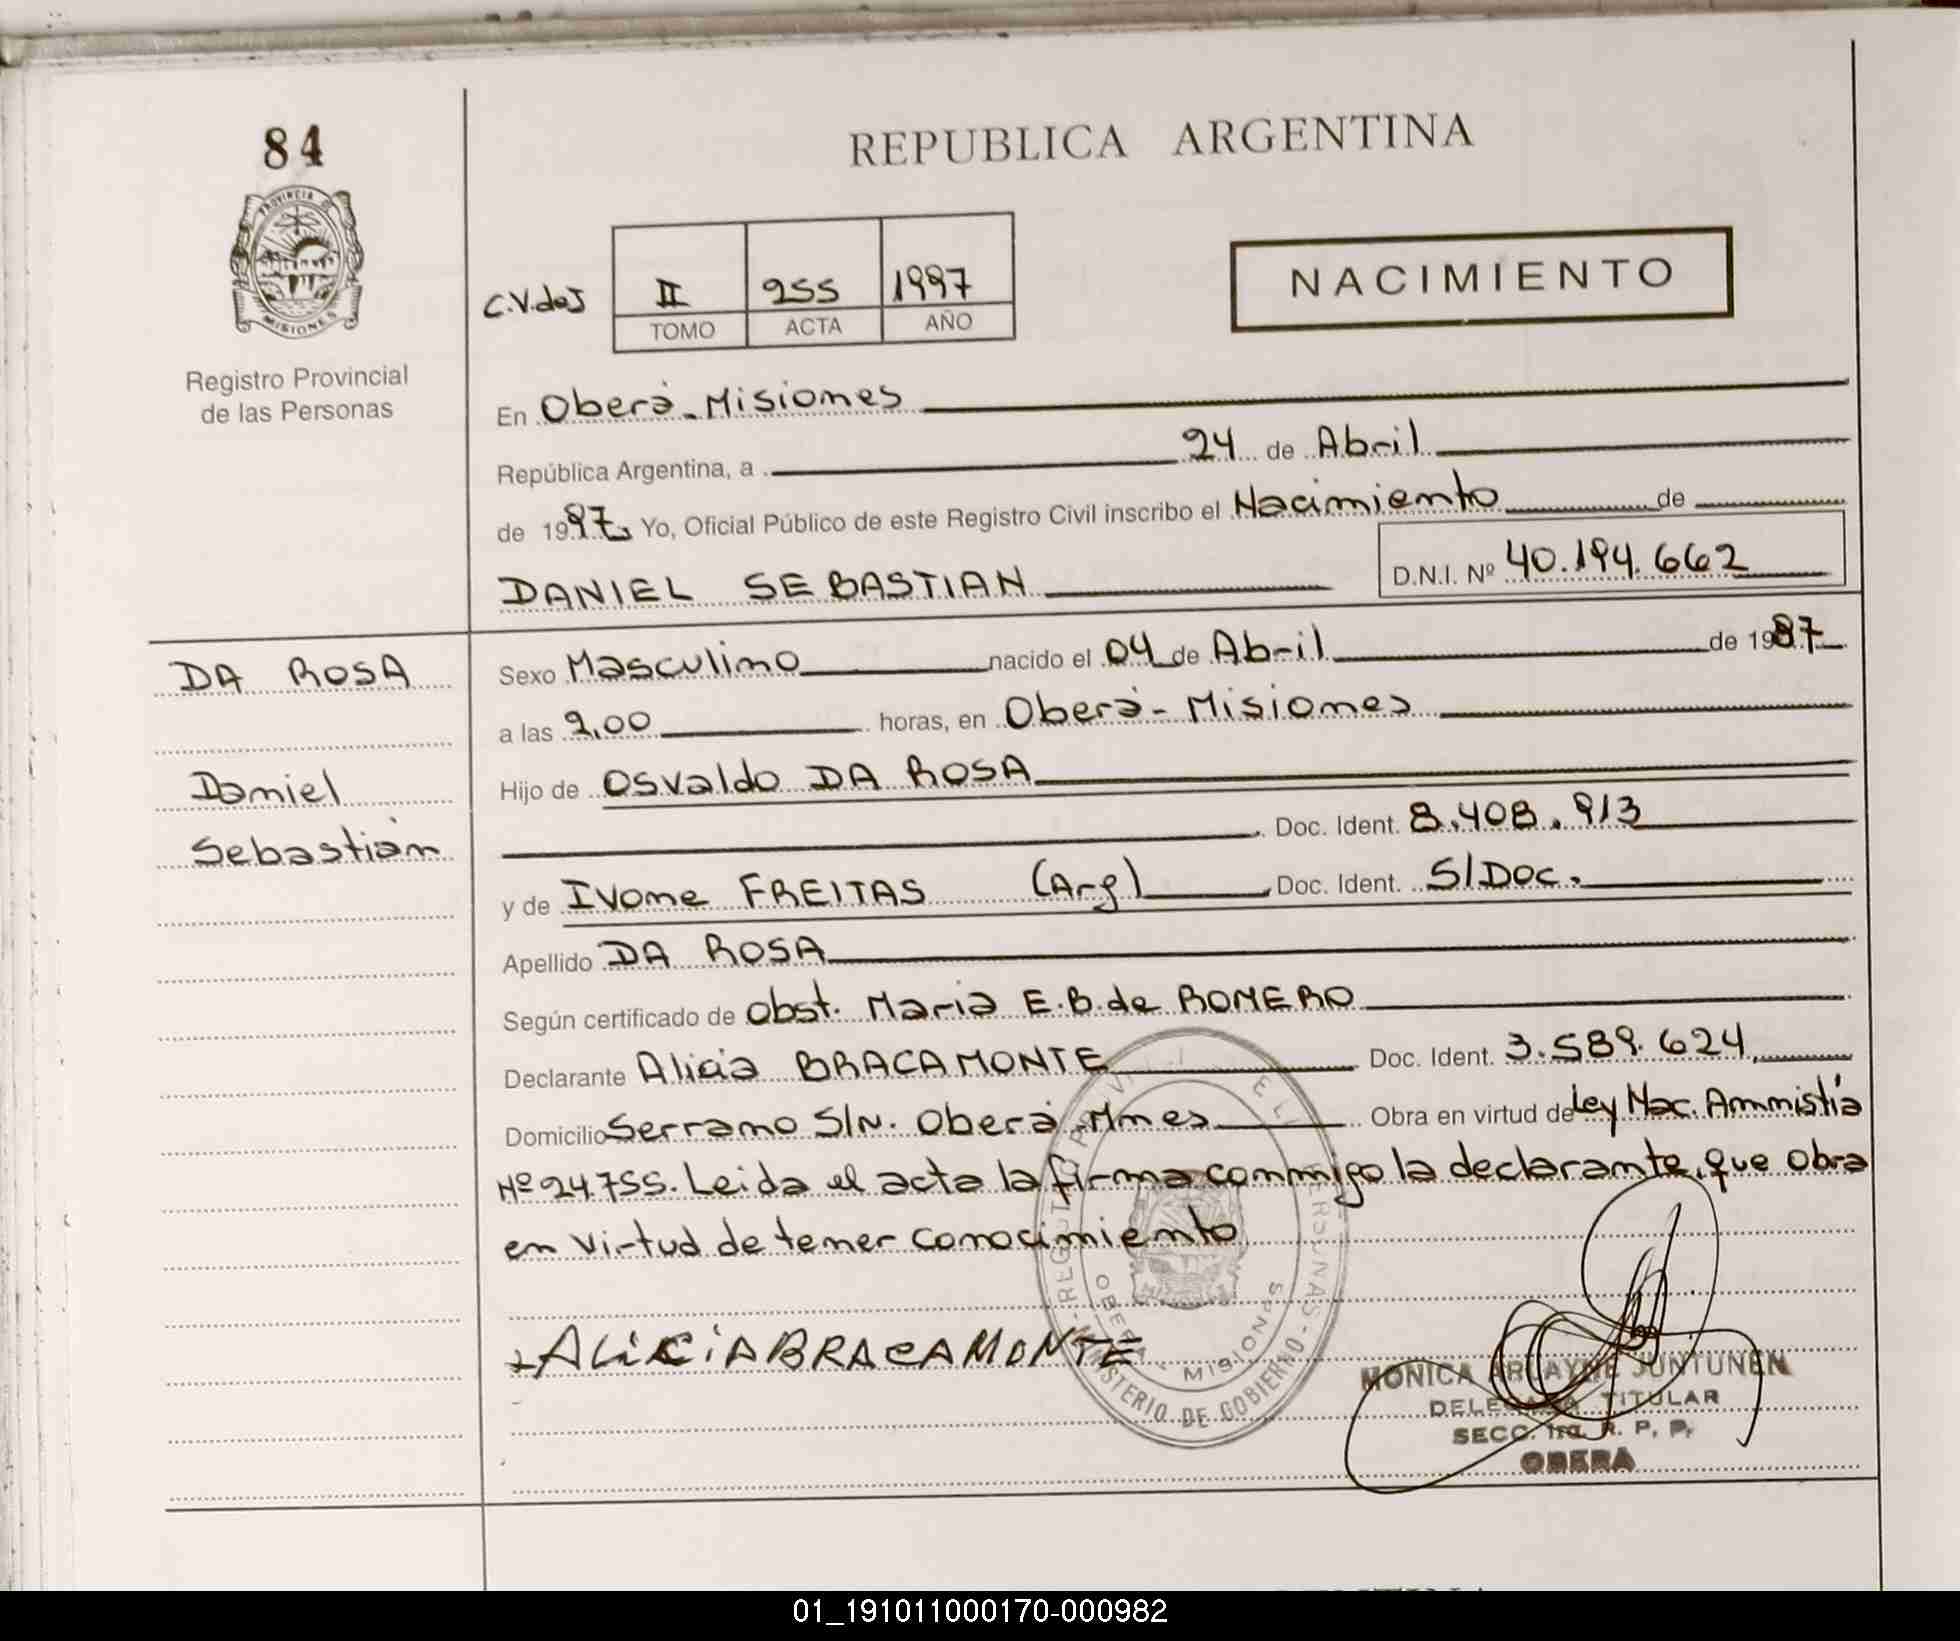 84
PROVINCIA DE
MISIONES
Registro Provincial
de las Personas
REPUBLICA ARGENTINA
C.V.deJ
II 255 1997
TOMO ACTA AÑO
NACIMIENTO
En Oberá-Misiones
República Argentina, a 24 de Abril
de 1997, Yo, Oficial Público de este Registro Civil inscribo el Nacimiento de
DANIEL SEBASTIAN D.N.I. Nº 40.194.662
DA ROSA
Daniel
Sebastián
Sexo Masculino nacido el 04 de Abril de 1997
a las 9,00 horas, en Oberá-Misiones
Hijo de Osvaldo DA ROSA
Doc. Ident. 8.408.913
y de Ivone FREITAS (Arg) Doc. Ident. S/Doc.
Apellido DA ROSA
Según certificado de Obst. Maria E.B.de ROMERO
Declarante Alicia BRACAMONTE Doc. Ident. 3.589.624
Domicilio Serrano S/N. Oberá-Mnes Obra en virtud de Ley Nac. Amnistía
Nº 24.755. Leida el acta la firma conmigo la declarante, que obra
en virtud de tener conocimiento
ALICIA BRACAMONTE
MINISTERIO DE GOBIERNO
OBERA - MISIONES
MONICA ARLAYNE JUNTUNEN
DELEGADA TITULAR
SECC. 1ra. R. P. P.
OBERA
01_191011000170-000982